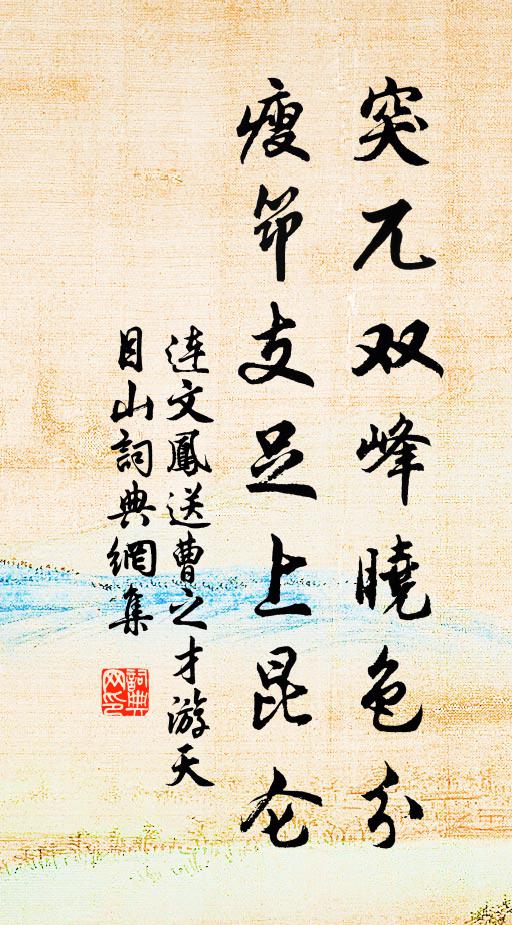 突兀双峰曉色分
瘦筇支足上昆仑
连文鳳送曹之才游天
目山詞典網集
詞典网印